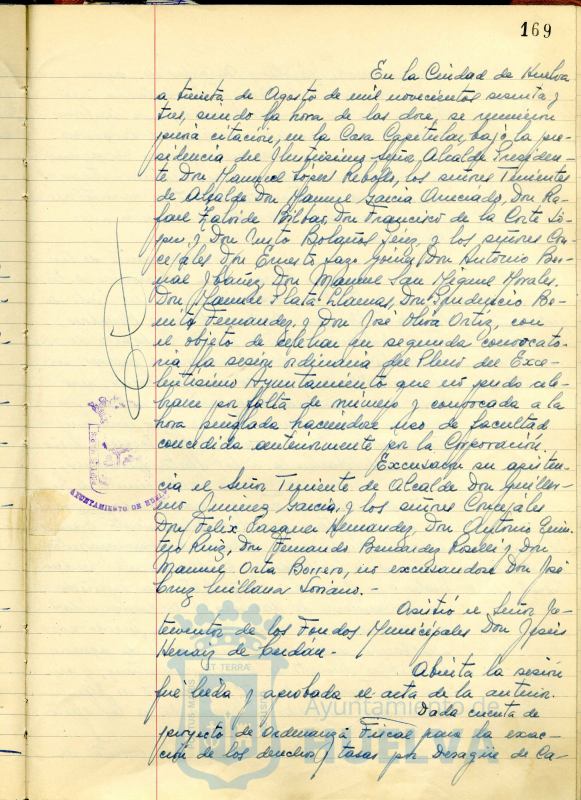 169
En la Ciudad de Huelva
a treinta de Agosto de mil novecientos sesenta y
tres, siendo la hora de las doce, se reunieron
previa citación, en la Casa Capitular, bajo la pre-
sidencia del Ilustrisimo Señor Alcalde Presiden-
te Don Manuel López Rebollo, los señores Tenientes
de Alcalde Don Manuel García Anreiado, Don Ra-
fael Zaloide Bilbao, Don Francisco de la Corte Ló-
pez y Don Justo Bolaños Jérez, y los señores Con-
cejales Don Ernesto Lazo Gómez, Don Antonio Ber-
nal Ybañez, Don Manuel San Miguel Morales,
Don Manuel Plata Llamas, Don Prudencio Be-
nito Fernandez, y Don José Oliva Ortiz, con
el objeto de celebrar en segunda convocato-
ria la sesión ordinaria del Pleno del Exce-
lentisimo Ayuntamiento que no pudo cele-
brarse por falta de número y convocada a la
hora señalada haciendose uso de facultad
concedida anteriormente por la Corporación.
Excusaron su asisten-
cia el Señor Teniente de Alcalde Don Guiller-
mo Jimenez García, y los señores Concejales
Don Felix Hernandez, Don Antonio Quin-
tero Ruiz, Don Fernando Bendarez y Don
Manuel Orta Borrero, no excusandose Don José
Cruz Quillana Soriano.-
Asistió el Señor In-
terventor de los Fondos Municipales Don Jesús
Herraiz de Cerdán.-
Abierta la sesión
fué leída y aprobada el acta de la anterior.
Dada cuenta de
proyecto de Ordenanza Fiscal para la exac-
ción de los derechos y tasas por Desagüe de Ca-
AYUNTAMIENTO DE HUELVA
Ayuntamiento de
HUELVA